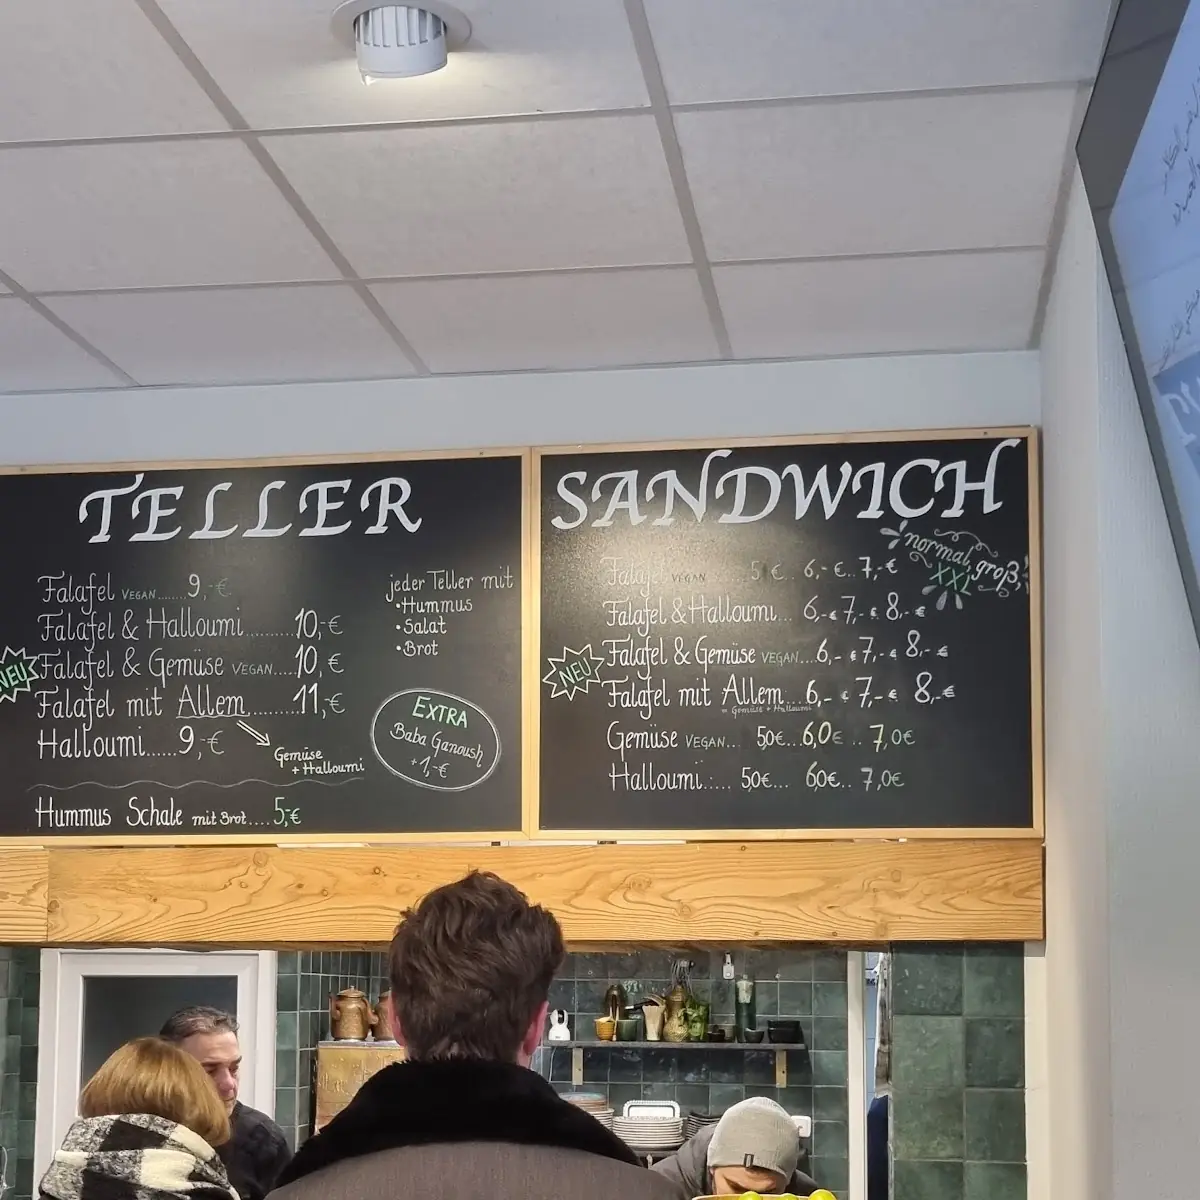 TELLER
Falafel VEGAN.......9,-€
Falafel & Halloumi.........10,-€
NEU
Falafel & Gemüse VEGAN....10,€
Falafel mit Allem.........11,-€
Halloumi......9,-€
Gemüse
+ Halloumi
Hummus Schale mit Brot....5,-€
jeder Teller mit
•Hummus
•Salat
•Brot
EXTRA
Baba Ganoush
+1,-€
SANDWICH
normal, groß,
XXL
Falafel VEGAN 5 €.. 6,-€.. 7,-€
Falafel & Halloumi... 6,-€ 7,-€ 8,-€
NEU
Falafel & Gemüse VEGAN...6,-€ 7,-€ 8,-€
Falafel mit Allem...6,-€ 7,-€ 8,-€
= Gemüse + Halloumi
Gemüse VEGAN... 50€...6,0€ .. 7,0€
Halloumi..... 50€... 60€.. 7,0€